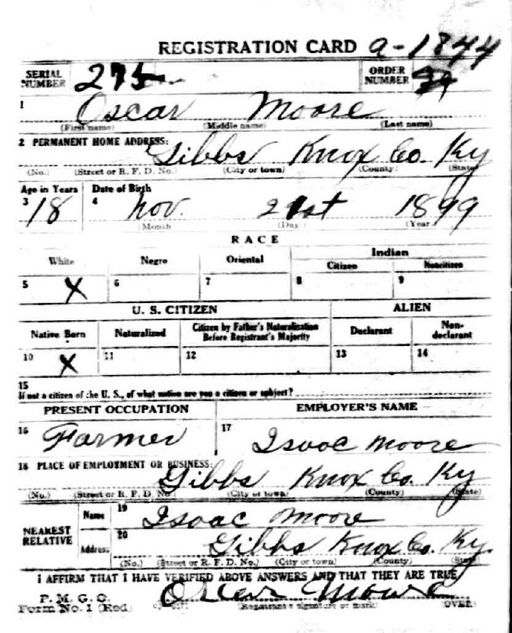 REGISTRATION CARD a-1844
SERIAL NUMBER 275 ORDER NUMBER
1 Oscar Moore
(First name) (Middle name) (Last name)
2 PERMANENT HOME ADDRESS: Gibbs Knox Co. Ky
(No.) (Street or R. F. D. No.) (City or town) (County) (State)
Age in Years Date of Birth
3 18 4 Nov. 21st 1899
(Month (Day) (Year)
RACE
White Negro Oriental Indian
Citizen Noncitizen
5 X 6 7 8 9
U. S. CITIZEN ALIEN
Native Born Naturalized Citizen by Father's Naturalization Before Registrant's Majority Declarant Non-declarant
10 X 11 12 13 14
15
If not a citizen of the U. S., of what nation are you a citizen or subject?
PRESENT OCCUPATION EMPLOYER'S NAME
16 Farmer 17 Isaac Moore
18 PLACE OF EMPLOYMENT OR BUSINESS: Gibbs Knox Co. Ky
(No.) (Street or R. F. D. No.) (City or town) (County) (State)
NEAREST RELATIVE Name 19 Isaac Moore
Address 20 Gibbs Knox Co. Ky.
(No.) (Street or R. F. D. No.) (City or town) (County) (State)
I AFFIRM THAT I HAVE VERIFIED ABOVE ANSWERS AND THAT THEY ARE TRUE
P. M. G. O.
Form No. 1 (Red) Oscar Moore
(Registrant's signature or mark) (OVER)